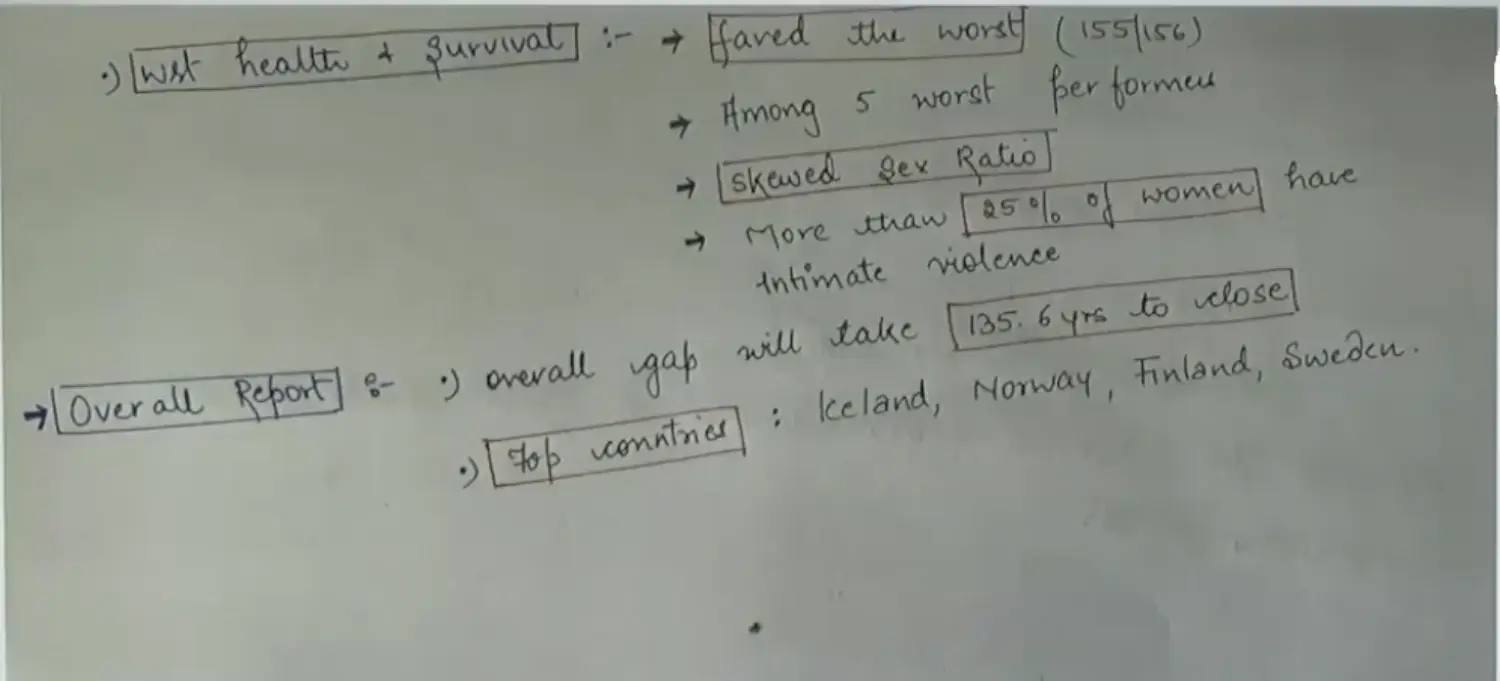 •) Wst health & Survival :- → fared the worst (155/156)
→ Among 5 worst performers
→ Skewed Sex Ratio
→ More than 25% of women have
Intimate violence
→ Over all Report :- •) overall gap will take 135.6 yrs to close
•) Top countries : Iceland, Norway, Finland, Sweden.